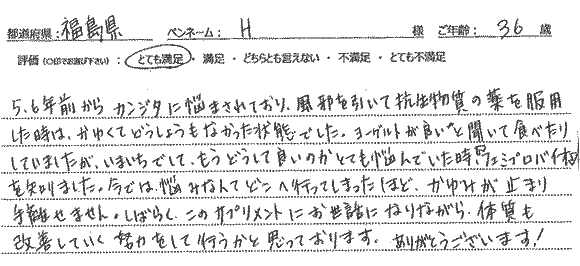 都道府県：福島県 ペンネーム：H 様 ご年齢：36 歳
評価（○印でお選び下さい）：とても満足・満足・どちらとも言えない・不満足・とても不満足
5、6年前からカンジダに悩まされており、風邪を引いて抗生物質の薬を服用
した時は、かゆくてどうしようもなかった状態でした。ヨーグルトが良いと聞いて食べたり
していましたが、いまいちでして、もうどうして良いのかとても悩んでいた時「フェミプロバイオ」
を知りました。今では、悩みなんてどこへ行ってしまったほど、かゆみが止まり
手離せません。しばらく、このサプリメントにお世話になりながら、体質も
改善していく努力をして行うかと思っております。ありがとうございます！